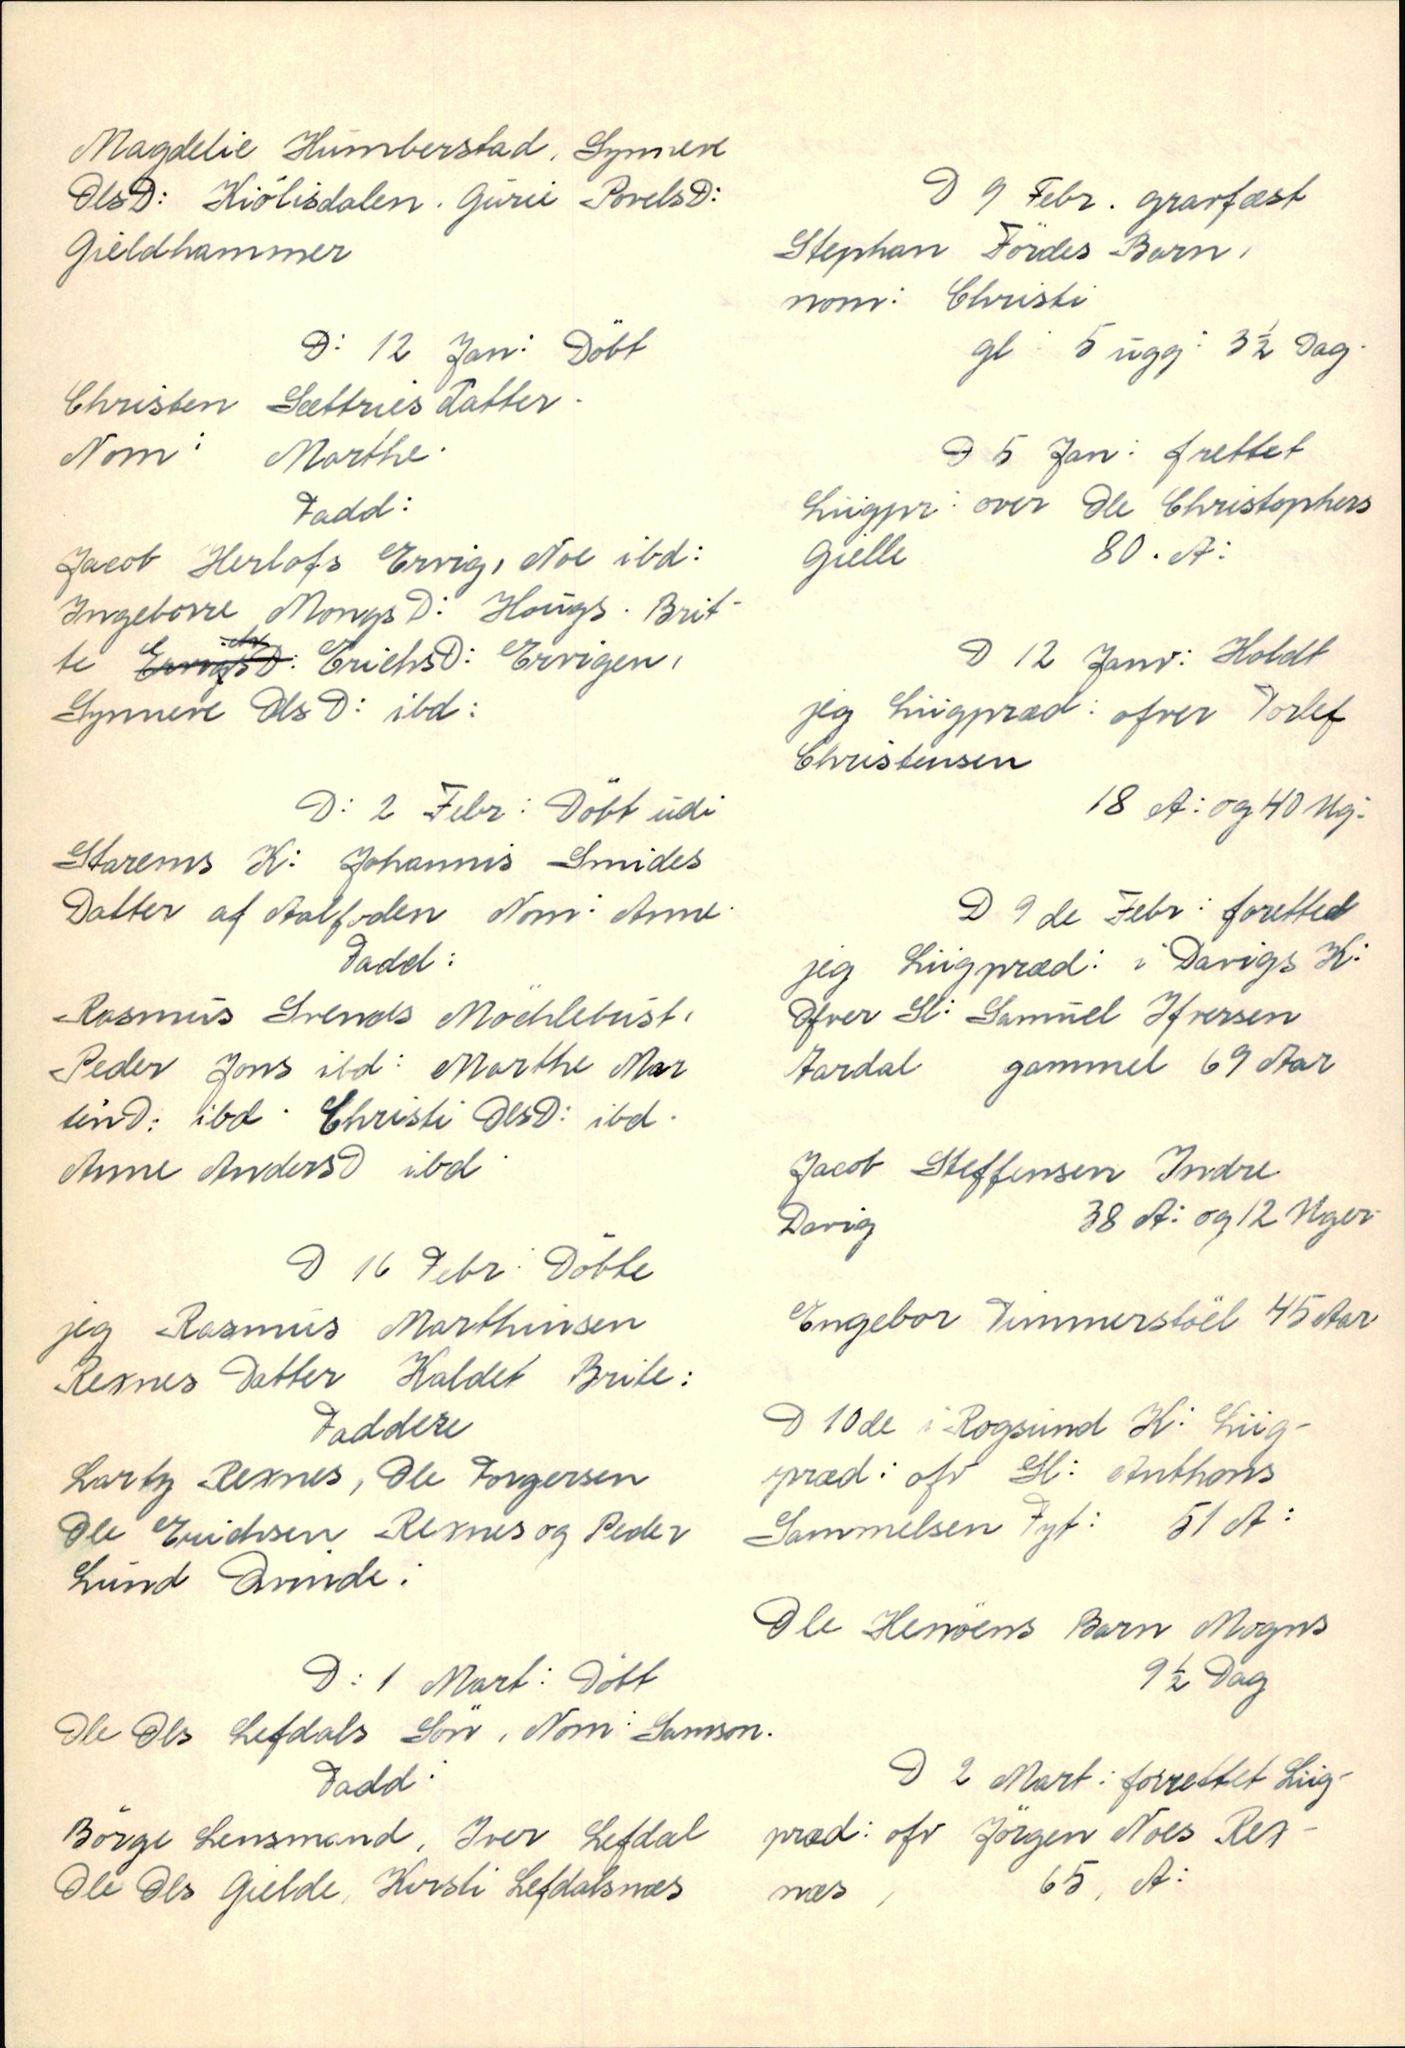 Magdelie Humberstad. Synneve
OlsD: Kiölisdalen. Gurie PovelsD:
Gieldhammer
D: 12 Jan: Döbt
Christen Sættries Datter.
Nom: Marthe.
Fadd:
Jacob Herlofs Ervig, Noe ibd:
Ingeborre MongsD: Hougs. Brit-
te ErichsD: Ervigen,
Synneve OlsD: ibd:
D: 2 Febr: Döbt udi
Starems K: Johannis Smides
Datter af Aalfoden Nom: Anne.
Fadd:
Rasmus Svends Möchlebust,
Peder Jons ibd: Marthe Mar
tinD: ibd. Christi OlsD: ibd.
Anne AndersD ibd.
D 16 Febr: Döbte
jeg Rasmus Marthinsen
Rexnes Datter Kaldet Brite:
Faddere
Lartz Rexnes, Ole Torgersen
Ole Erichsen Rexnes og Peder
Lund Qvinde:
D: 1 Mart: Döbt
Ole Ols Lefdals Sön, Nom: Samson.
Fadd:
Börge Lensmand, Iver Lefdal
Ole Ols Gielde, Kirsti Lefdalsnæs
D 9 Febr. gravfæst
Stephan Fördes Barn,
nom: Christi
gl: 5 ugg: 3½ Dag.
D 5 Jan: frettet
Liigpr: over Ole Christophers
Gielle 80. A:
D 12 Janv: Holdt
jeg Liigpræd: ofver Torlef
Christensen
18 A: og 40 Ug:
D 9de Febr: foretted
jeg Liigpræd: i Davigs K:
Ofver Sl: Samuel Ifversen
Aardal gammel 69 Aar
Jacob Steffensen Indre
Davig 38 A: og 12 Uger.
Engebor Timmerstöel 45 Aar
D 10de i Rogsund K: Liig-
præd: ofv Sl: Anthons
Sammelsen Tyt: 51 A:
Ole Henöens Barn Mogns
9½ Dag
D 2 Mart: forrettet Liig-
præd: ofv Jörgen Noes Rex-
næs, 65, A: